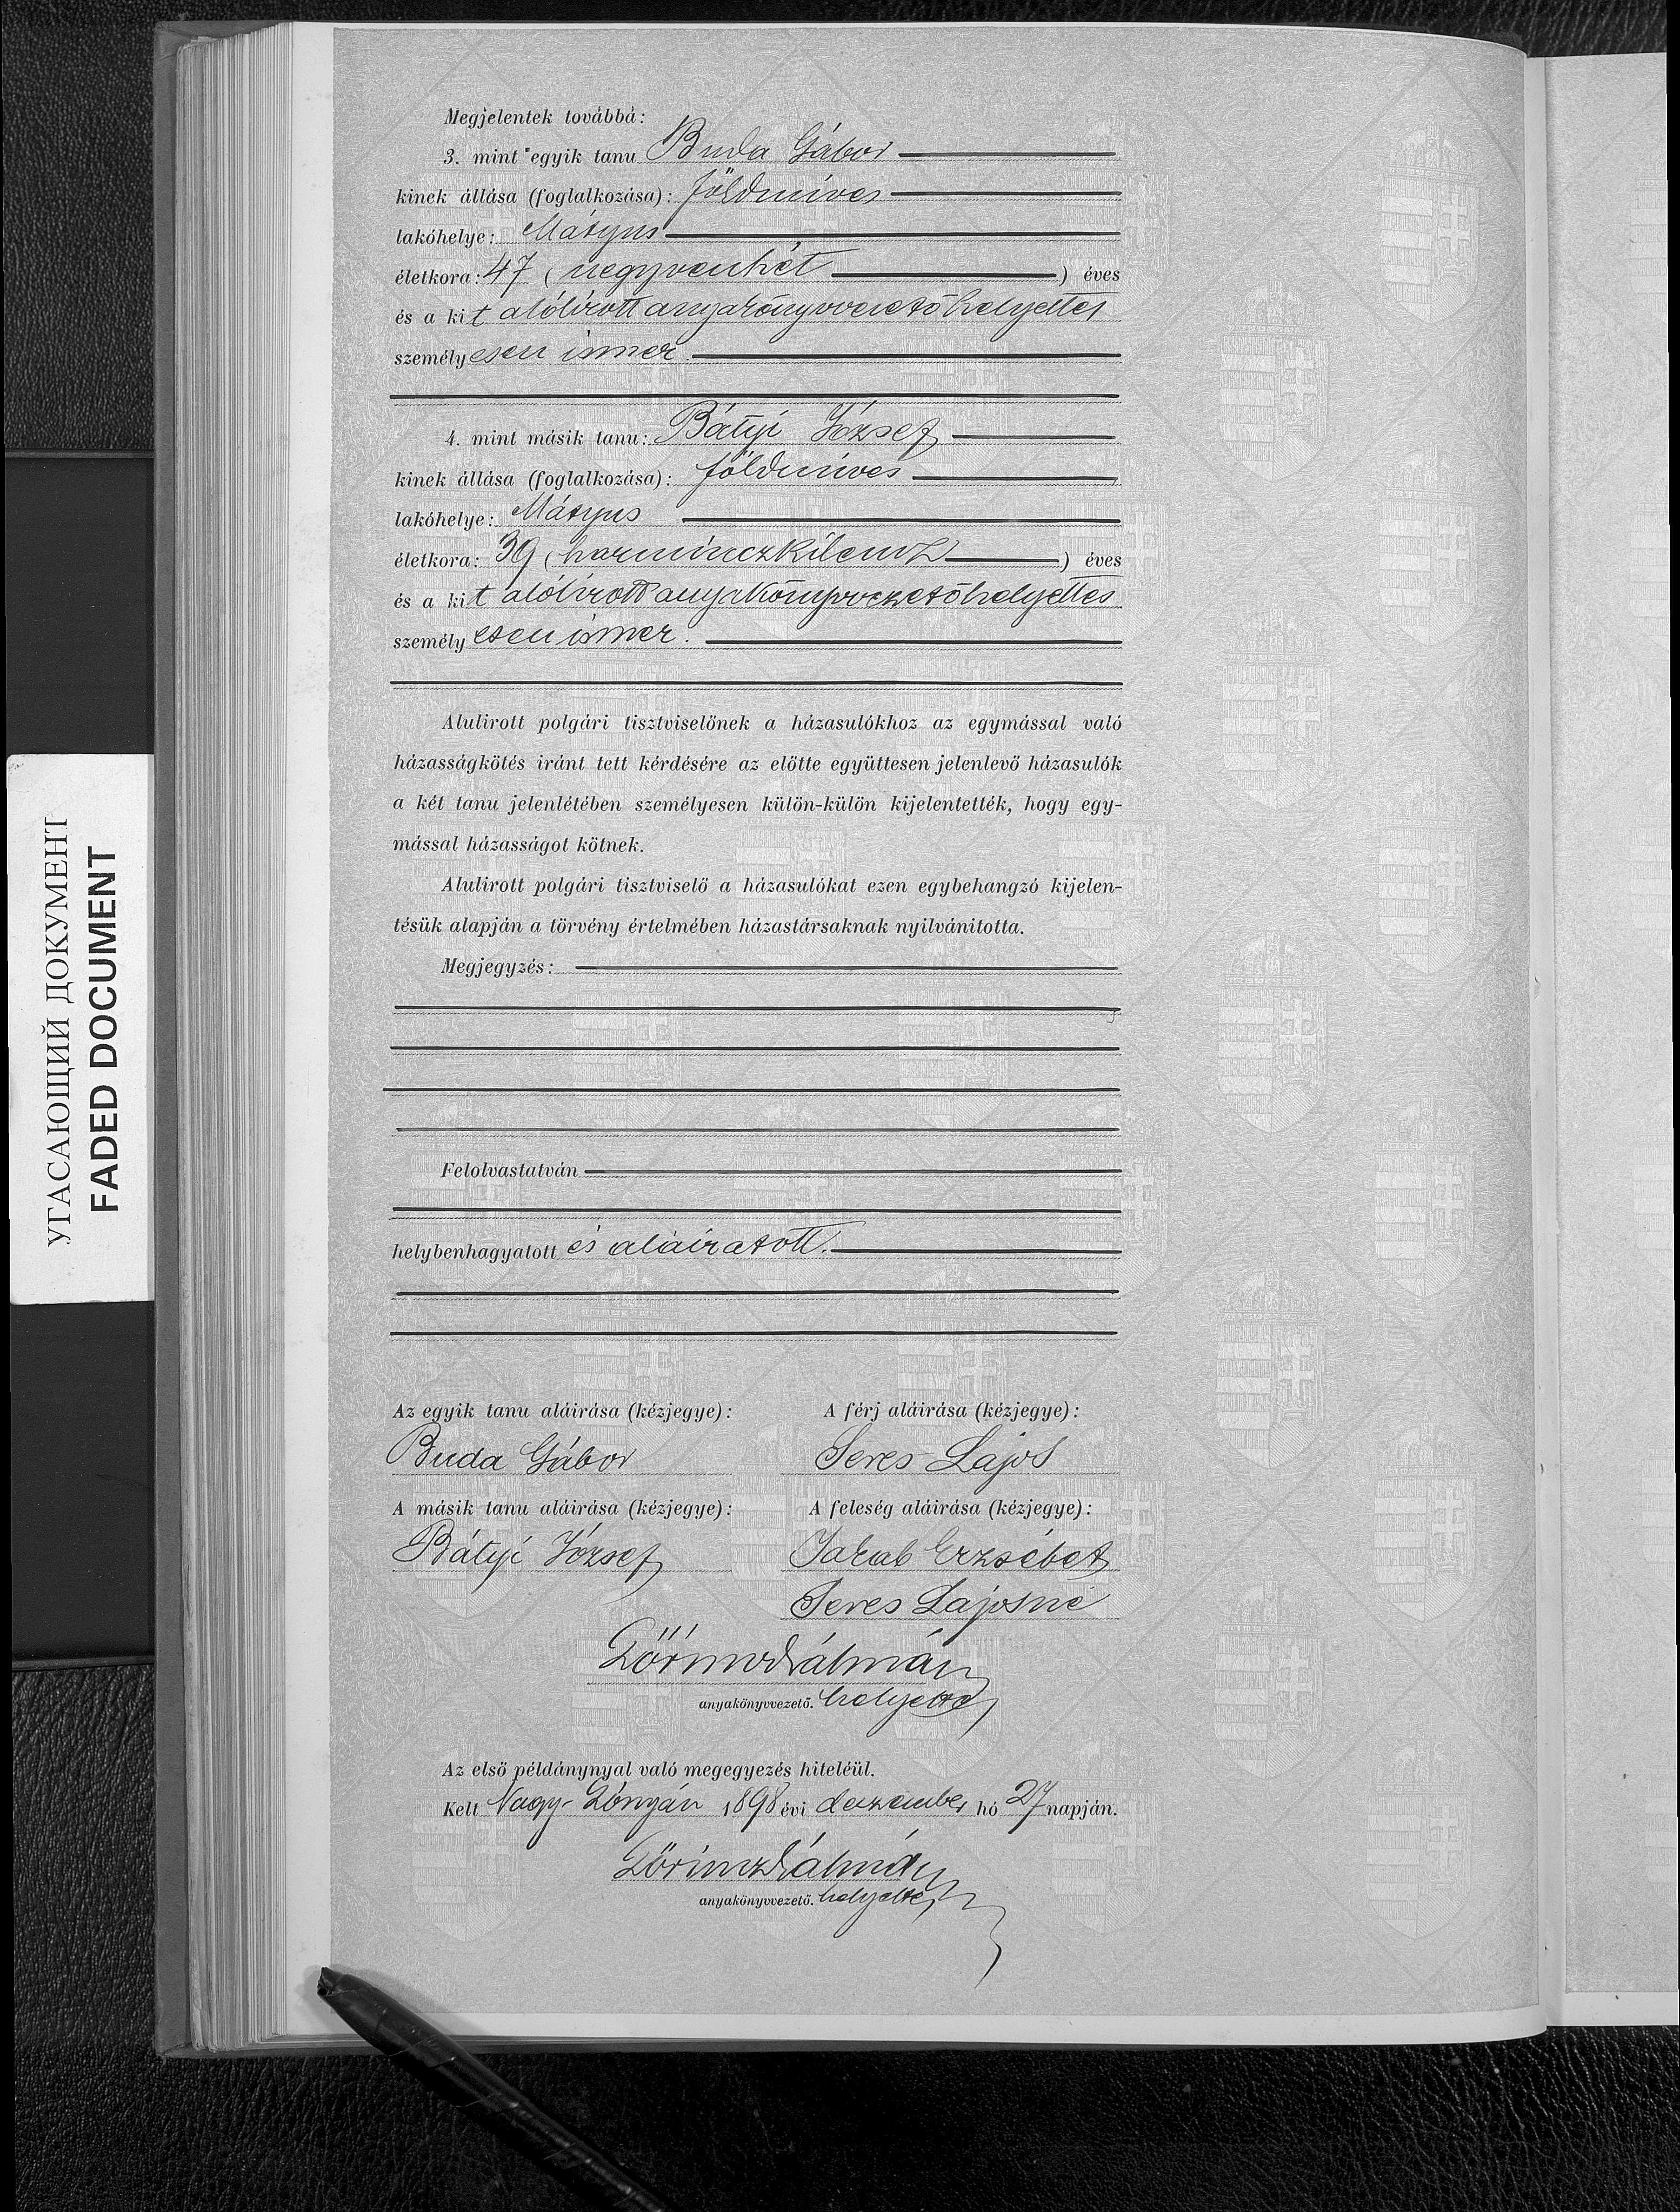 Megjelentek továbbá:
3. mint egyik tanu Buda Gábor
kinek állása (foglalkozása): földmíves
lakóhelye: Mátyus
életkora: 47 (negyvenhét) éves
és a kit alólírott anyakönyvvezetőhelyettes
személyesen ismer.
4. mint másik tanu: Bátyi József
kinek állása (foglalkozása): földmíves
lakóhelye: Mátyus
életkora: 39 (harminczkilencz) éves
és a kit alólírott anyakönyvvezetőhelyettes
személyesen ismer.
Alulirott polgári tisztviselőnek a házasulókhoz az egymással való
házasságkötés iránt tett kérdésére az előtte együttesen jelenlevő házasulók
a két tanu jelenlétében személyesen külön-külön kijelentették, hogy egy-
mással házasságot kötnek.
Alulirott polgári tisztviselő a házasulókat ezen egybehangzó kijelen-
tésük alapján a törvény értelmében házastársaknak nyilvánitotta.
Megjegyzés:
Felolvastatván
helybenhagyatott és aláiratott.
Az egyik tanu aláirása (kézjegye):
Buda Gábor
A férj aláirása (kézjegye):
Seres Lajos
A másik tanu aláirása (kézjegye):
Bátyi József
A feleség aláirása (kézjegye):
Jakab Erzsébet
Seres Lajosné
Kálmán
anyakönyvvezető. helyettes
Az első példánynyal való megegyezés hiteléül.
Kelt Nagy-Lónyán 1898 évi deczember hó 27 napján.
Kálmán
anyakönyvvezető. helyettes
УГАСАЮЩИЙ ДОКУМЕНТ
FADED DOCUMENT